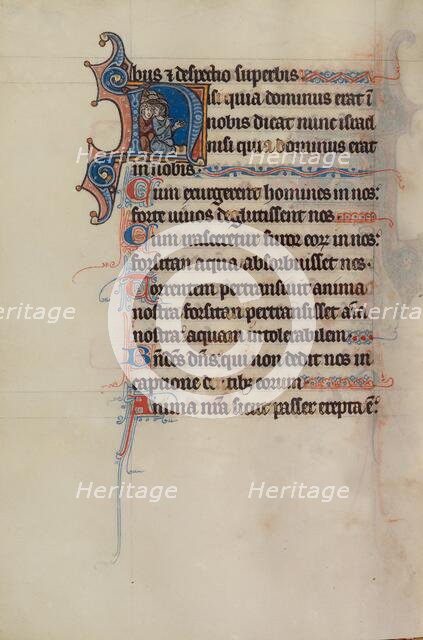 bus & despectio superbis
Nisi quia dominus erat i
nobis dicat nunc israel
nisi quia dominus erat
in nobis
Cum exurgerent homines in nos:
forte vivos deglutissent nos
Cum irasceretur furor eorū in nos:
forsitan aqua absorbuisset nos
Torrentem pertransivit anima
nostra forsitan pertransisset aīa
nostra aquam intolerabilem
Bn̄dcs dn̄s: qui non dedit nos in
captione dentibus eorum
Anima nr̄a sicut passer erepta ē:
Heritage
Heritage
Heritage
Heritage
Heritage
Heritage
Heritage
Heritage